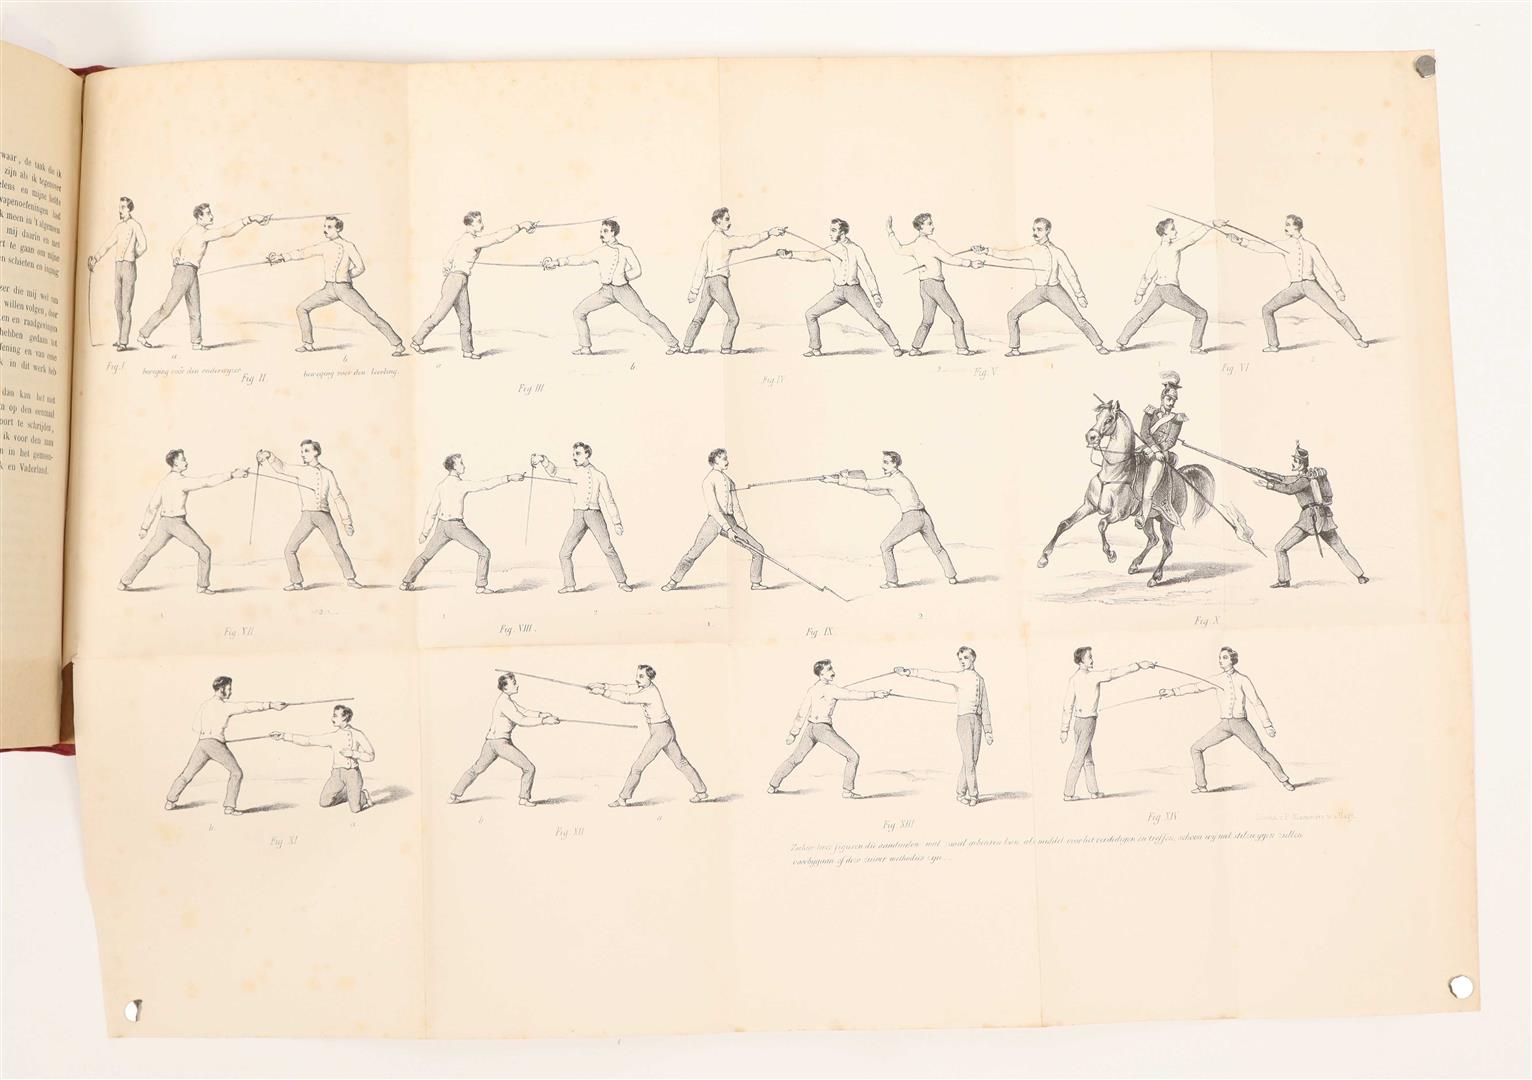 waar, de taak die ik
zijn als ik tegenover
elens en mijne liefde
wapenoefeningen had
k meen in 't algemeen
mij daarin en met
rt te gaan om mijne
en schieten en
zer die mij wel van
willen volgen, door
en en raadgevingen
hebben gedaan tot
fening en van onze
k in dit werk heb
dan kan het niet
n op den eenmaal
oort te schrijden,
ik voor den man
n in het gemeen-
k en Vaderland.
Fig. I
a
beweging voor den onderwyzer
Fig II.
b
beweging voor den leerling.
a
Fig III
b
Fig IV
2
Fig. V
1
1
Fig. VI
2
1
Fig. VII
2
1
Fig. VIII.
2
1.
Fig. IX.
2
Fig. X
b
Fig. XI
a
b
Fig. XII
a
Fig. XIII
Fig. XIV
figuren die aandnelen wat als middel voor het verdedigen en treffen, schoon wij met stilzwygen zullen
voorbygaan of deze zuiver methodies zyn.